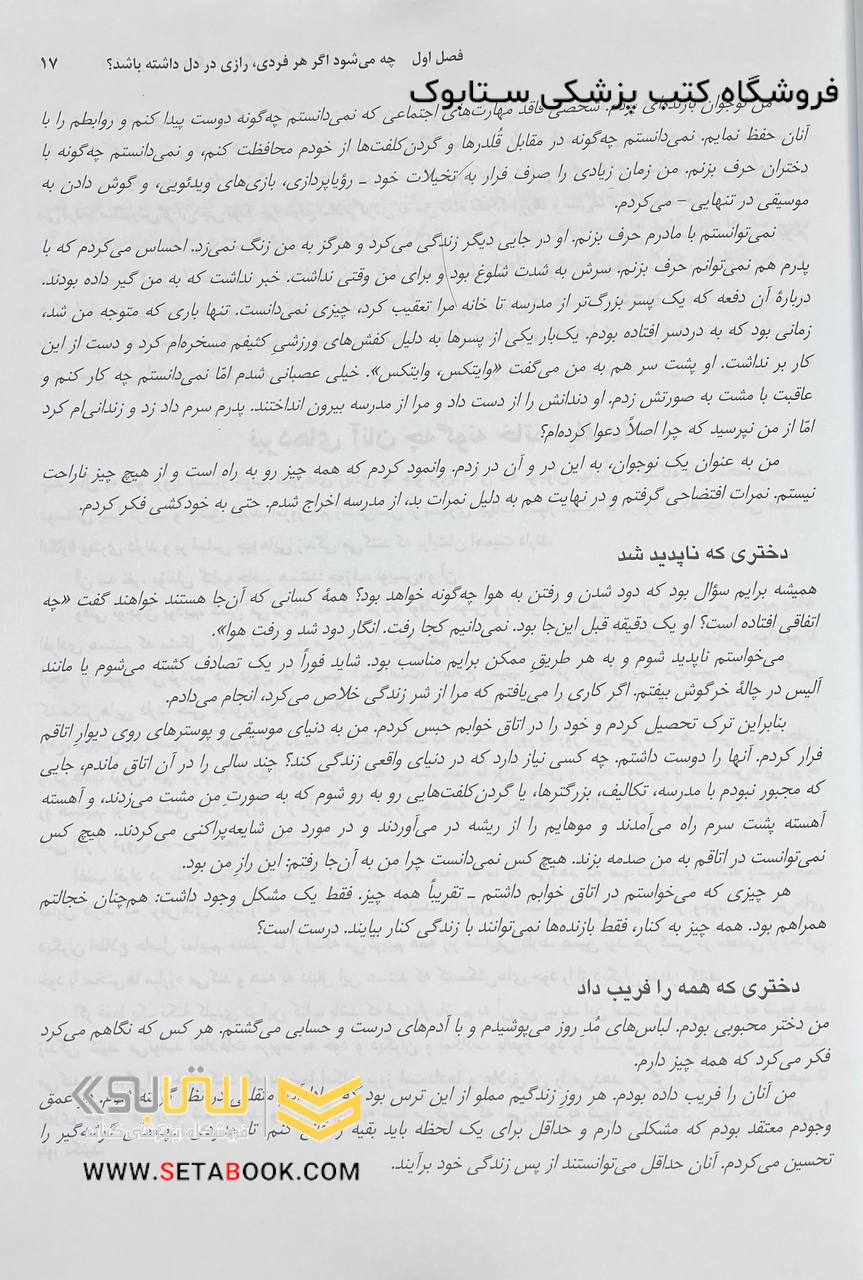 فصل اول    چه می‌شود اگر هر فردی، رازی در دل داشته باشد؟    ۱۷
فروشگاه کتب پزشکی ستابوک
من نوجوان بازنده‌ای بودم. شخصی فاقد مهارت‌های اجتماعی که نمی‌دانستم چه‌گونه دوست پیدا کنم و روابطم را با
آنان حفظ نمایم. نمی‌دانستم چه‌گونه در مقابل قُلدرها و گردن‌کلفت‌ها از خودم محافظت کنم، و نمی‌دانستم چه‌گونه با
دختران حرف بزنم. من زمان زیادی را صرف فرار به تخیلات خود ـ رؤیاپردازی، بازی‌های ویدئویی، و گوش دادن به
موسیقی در تنهایی – می‌کردم.
نمی‌توانستم با مادرم حرف بزنم. او در جایی دیگر زندگی می‌کرد و هرگز به من زنگ نمی‌زد. احساس می‌کردم که با
پدرم هم نمی‌توانم حرف بزنم. سرش به شدت شلوغ بود و برای من وقتی نداشت. خبر نداشت که به من گیر داده بودند.
دربارهٔ آن دفعه که یک پسر بزرگ‌تر از مدرسه تا خانه مرا تعقیب کرد، چیزی نمی‌دانست. تنها باری که متوجه من شد،
زمانی بود که به دردسر افتاده بودم. یک‌بار یکی از پسرها به دلیل کفش‌های ورزشیِ کثیفم مسخره‌ام کرد و دست از این
کار بر نداشت. او پشت سر هم به من می‌گفت «وایتکس، وایتکس». خیلی عصبانی شدم امّا نمی‌دانستم چه کار کنم و
عاقبت با مشت به صورتش زدم. او دندانش را از دست داد و مرا از مدرسه بیرون انداختند. پدرم سرم داد زد و زندانی‌ام کرد
امّا از من نپرسید که چرا اصلاً دعوا کرده‌ام؟
من به عنوان یک نوجوان، به این در و آن در زدم. وانمود کردم که همه چیز رو به راه است و از هیچ چیز ناراحت
نیستم. نمرات افتضاحی گرفتم و در نهایت هم به دلیل نمرات بد، از مدرسه اخراج شدم. حتی به خودکشی فکر کردم.
دختری که ناپدید شد
همیشه برایم سؤال بود که دود شدن و رفتن به هوا چه‌گونه خواهد بود؟ همهٔ کسانی که آن‌جا هستند خواهند گفت «چه
اتفاقی افتاده است؟ او یک دقیقه قبل این‌جا بود. نمی‌دانیم کجا رفت. انگار دود شد و رفت هوا».
می‌خواستم ناپدید شوم و به هر طریقِ ممکن برایم مناسب بود. شاید فوراً در یک تصادف کشته می‌شوم یا مانند
آلیس در چالهٔ خرگوش بیفتم. اگر کاری را می‌یافتم که مرا از شر زندگی خلاص می‌کرد، انجام می‌دادم.
بنابراین ترک تحصیل کردم و خود را در اتاق خوابم حبس کردم. من به دنیای موسیقی و پوسترهای روی دیوارِ اتاقم
فرار کردم. آنها را دوست داشتم. چه کسی نیاز دارد که در دنیای واقعی زندگی کند؟ چند سالی را در آن اتاق ماندم، جایی
که مجبور نبودم با مدرسه، تکالیف، بزرگترها، یا گردن‌کلفت‌هایی رو به رو شوم که به صورت من مشت می‌زدند، و آهسته
آهسته پشت سرم راه می‌آمدند و موهایم را از ریشه در می‌آوردند و در مورد من شایعه‌پراکنی می‌کردند. هیچ کس
نمی‌توانست در اتاقم به من صدمه بزند. هیچ کس نمی‌دانست چرا من به آن‌جا رفتم: این رازِ من بود.
هر چیزی که می‌خواستم در اتاق خوابم داشتم ـ تقریباً همه چیز. فقط یک مشکل وجود داشت: هم‌چنان خجالتم
همراهم بود. همه چیز به کنار، فقط بازنده‌ها نمی‌توانند با زندگی کنار بیایند. درست است؟
دختری که همه را فریب داد
من دختر محبوبی بودم. لباس‌های مُدِ روز می‌پوشیدم و با آدم‌های درست و حسابی می‌گشتم. هر کس که نگاهم می‌کرد
فکر می‌کرد که همه چیز دارم.
من آنان را فریب داده بودم. هر روزِ زندگیم مملو از این ترس بود که
عمق
وجودم معتقد بودم که مشکلی دارم و حداقل برای یک لحظه باید بقیه را
را
تحسین می‌کردم. آنان حداقل می‌توانستند از پس زندگی خود برآیند.
ستابوک
WWW.SETABOOK.COM